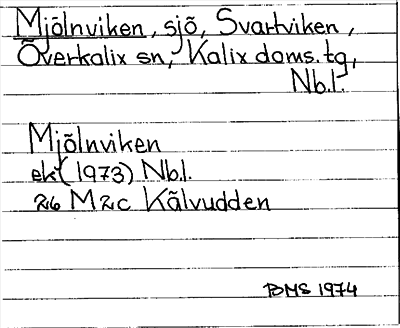 Mjölnviken, sjö, Svartviken,
Överkalix sn, Kalix doms. tg,
Nb.l.
Mjölnviken
ek (1973) Nb.l.
26 M 2c Kälvudden
BMS 1974